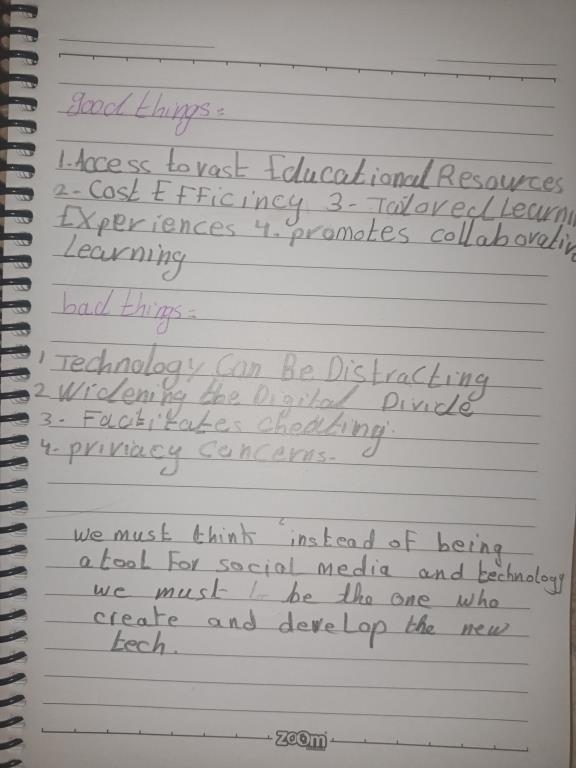 good things:
1. Access to vast Educational Resources
2- Cost Efficincy 3- Tailored Learnin
Experiences 4. promotes collaborativ
Learning
bad things:
1 Technology Can Be Distracting
2 Widening the Digital Divide
3- Facititates cheating.
4- priviacy concerns.
we must think instead of being
a tool for social media and technology
we must be the one who
create and develop the new
tech.
zoom